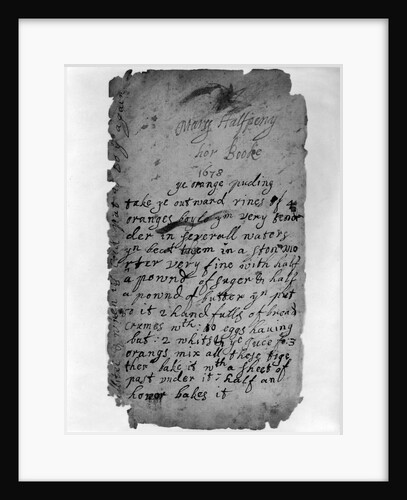 Mary Halfpeny
her Booke
1678
ye orange puding
take ye outward rines of
oranges boyle ym very tender
der in severall waters
yn beat them in a ston mo
rter very fine with half
a pownd of suger & half
a pownd of butter yn put
to it 2 handfulls of bread
crumes wth: 10 eggs having
but: 2 whits ye juce of 3
orangs mix all these toge
ther bake it wth a sheet of
past under it: half an
honor bakes it